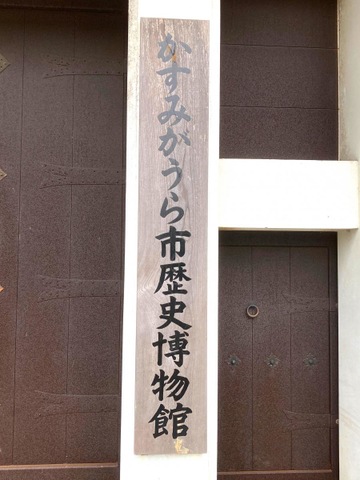 かすみがうら市歴史博物館